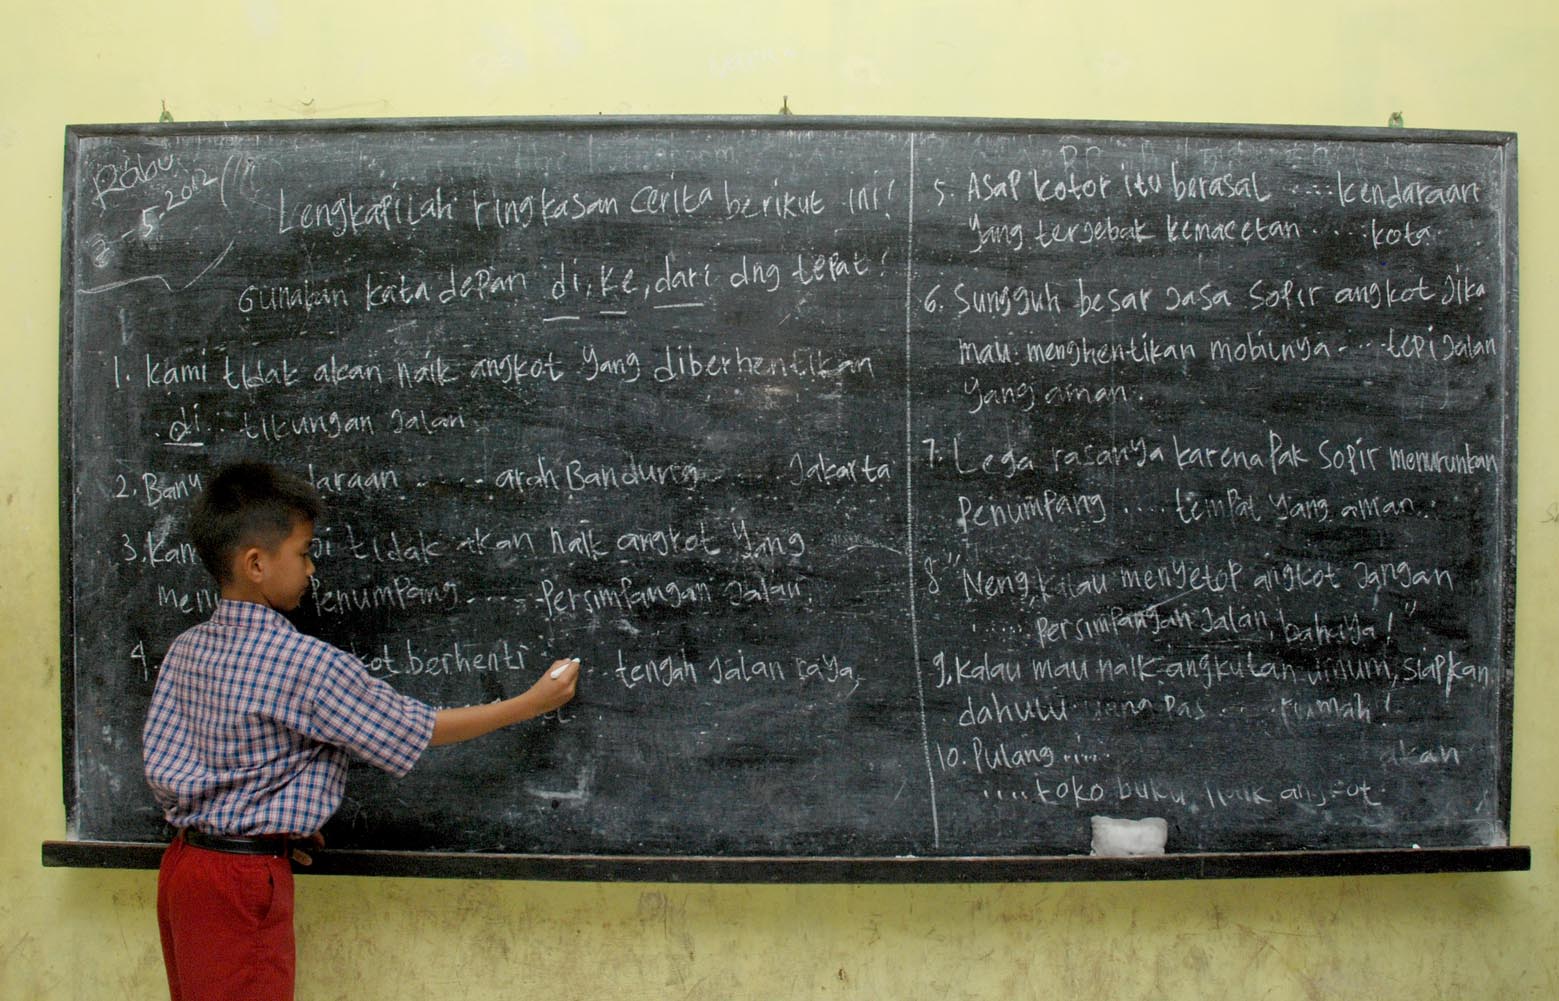 Rabu
2-5-2012
Lengkapilah ringkasan cerita berikut ini!
Gunakan kata depan di, ke, dari dng tepat!
1. Kami tidak akan naik angkot yang diberhentikan
.di.. tikungan jalan
2. Bany araan ..... arah Bandung .... Jakarta
3. Kam i tidak akan naik angkot yang
menu Penumpang ..... Persimpangan jalan.
4. kot berhenti ..... tengah jalan raya,
5. Asap kotor itu berasal ..... kendaraan
yang terjebak kemacetan ..... kota.
6. Sungguh besar jasa sopir angkot jika
mau menghentikan mobilnya ..... tepi jalan
yang aman.
7. Lega rasanya karena Pak Sopir menurunkan
Penumpang .... tempat yang aman.
8 "Neng, kalau menyetop angkot jangan
...... Persimpangan jalan, bahaya!"
9. Kalau mau naik angkutan umum, siapkan
dahulu uang Pas ..... rumah!
10. Pulang ..... akan
..... toko buku naik angkot.